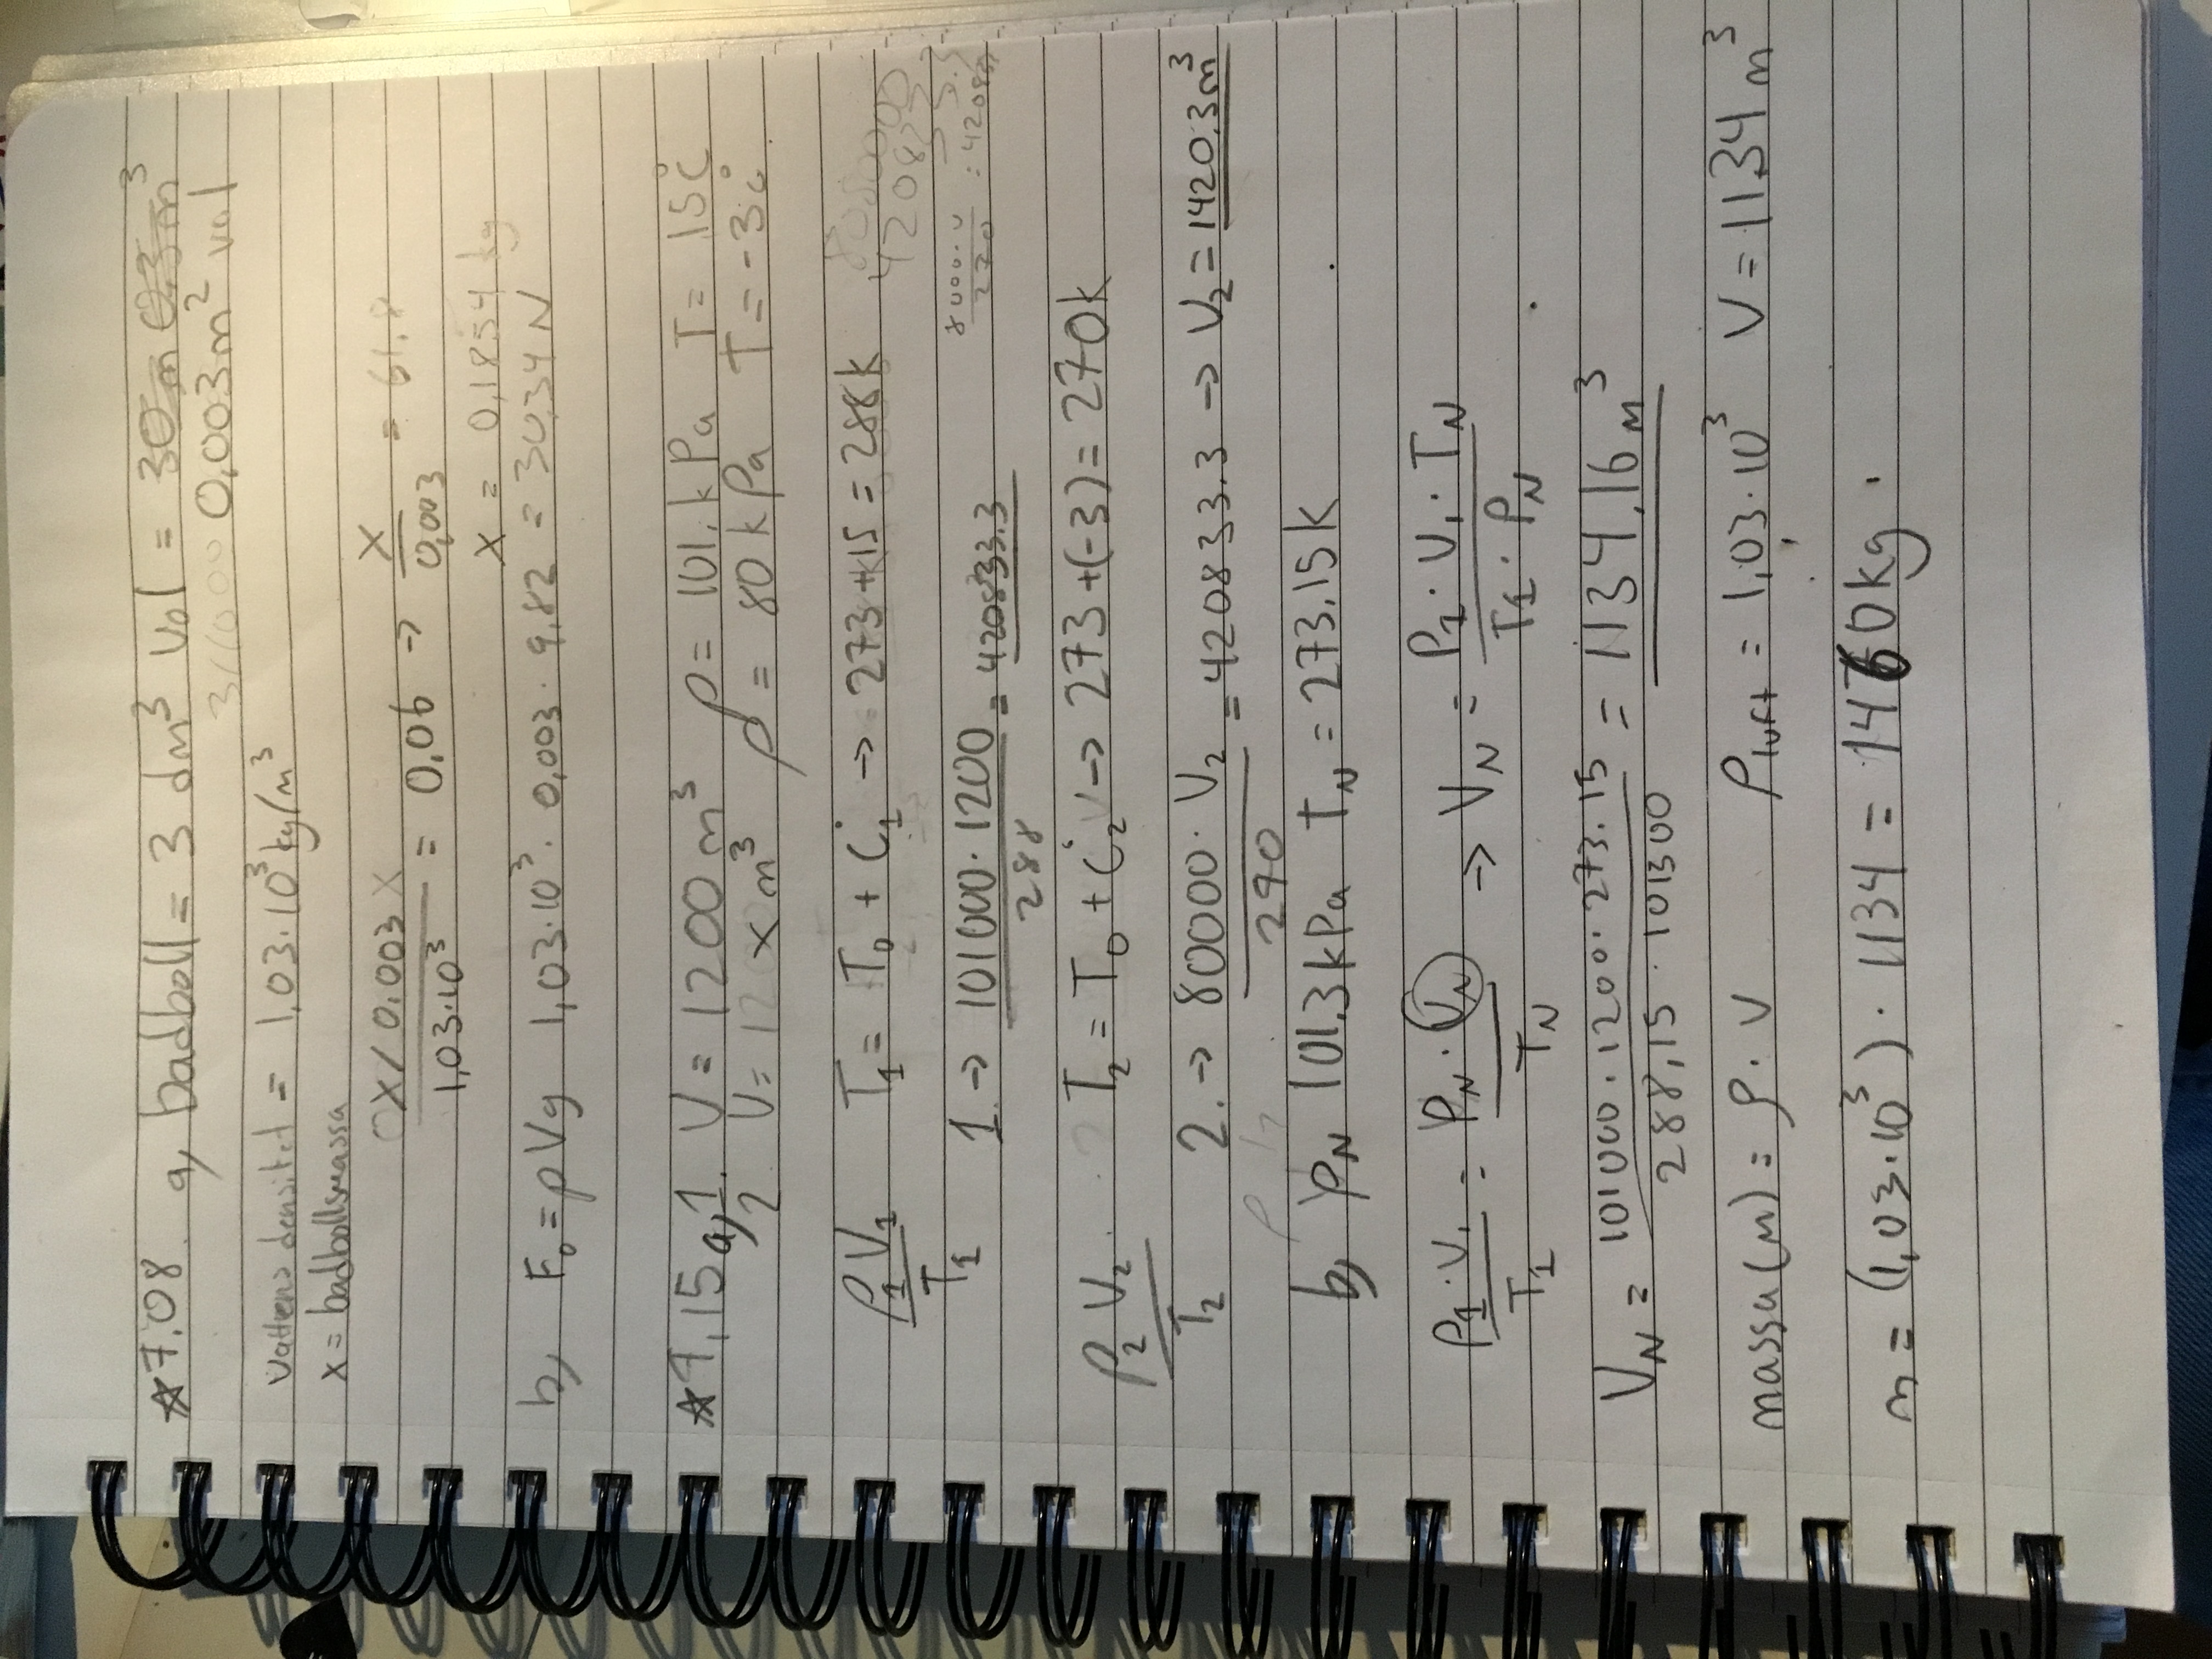 ☆7.08. a, badboll = 3 dm³ vol = 30 m 0,3 m³
0,003m² vol
vattens densitet = 1,03·10³ kg/m³
x = badbollsmassa
x / 0.003 / 1,03·10³ = 0,06 → x / 0,003 = 61.8
x = 0,1854 kg
b, F₀ = ρVg 1,03·10³ · 0,003 · 9,82 = 30,34 N
☆9,15 a, 1. V = 1200 m³ ρ = 101. kPa T = 15 C°
2. V = x m³ ρ = 80 kPa T = -3 C°
ρ₁V₁ / T₁ T₁ = T₀ + C°₁ → 273 + 15 = 288k
8080000
420833.3
1. → 101000·1200 / 288 = 420833.3
8000·v / 270 = 42083
ρ₂V₂ / T₂ T₂ = T₀ + C°₂ → 273 + (-3) = 270k
2. → 80000· V₂ / 270 = 420833.3 → V₂ = 1420.3m³
b, ρN 101.3 kPa TN = 273.15 k
ρ₁·V₁ / T₁ = ρN·VN / TN → VN = P₁·V₁·TN / T₁·PN
VN = 101000·1200·273.15 / 288,15 · 101300 = 1134,16 m³
massa(m) = ρ · V ρluft = 1,03·10³ V = 1134 m³
m = (1,03·10³) · 1134 = 1460 kg.